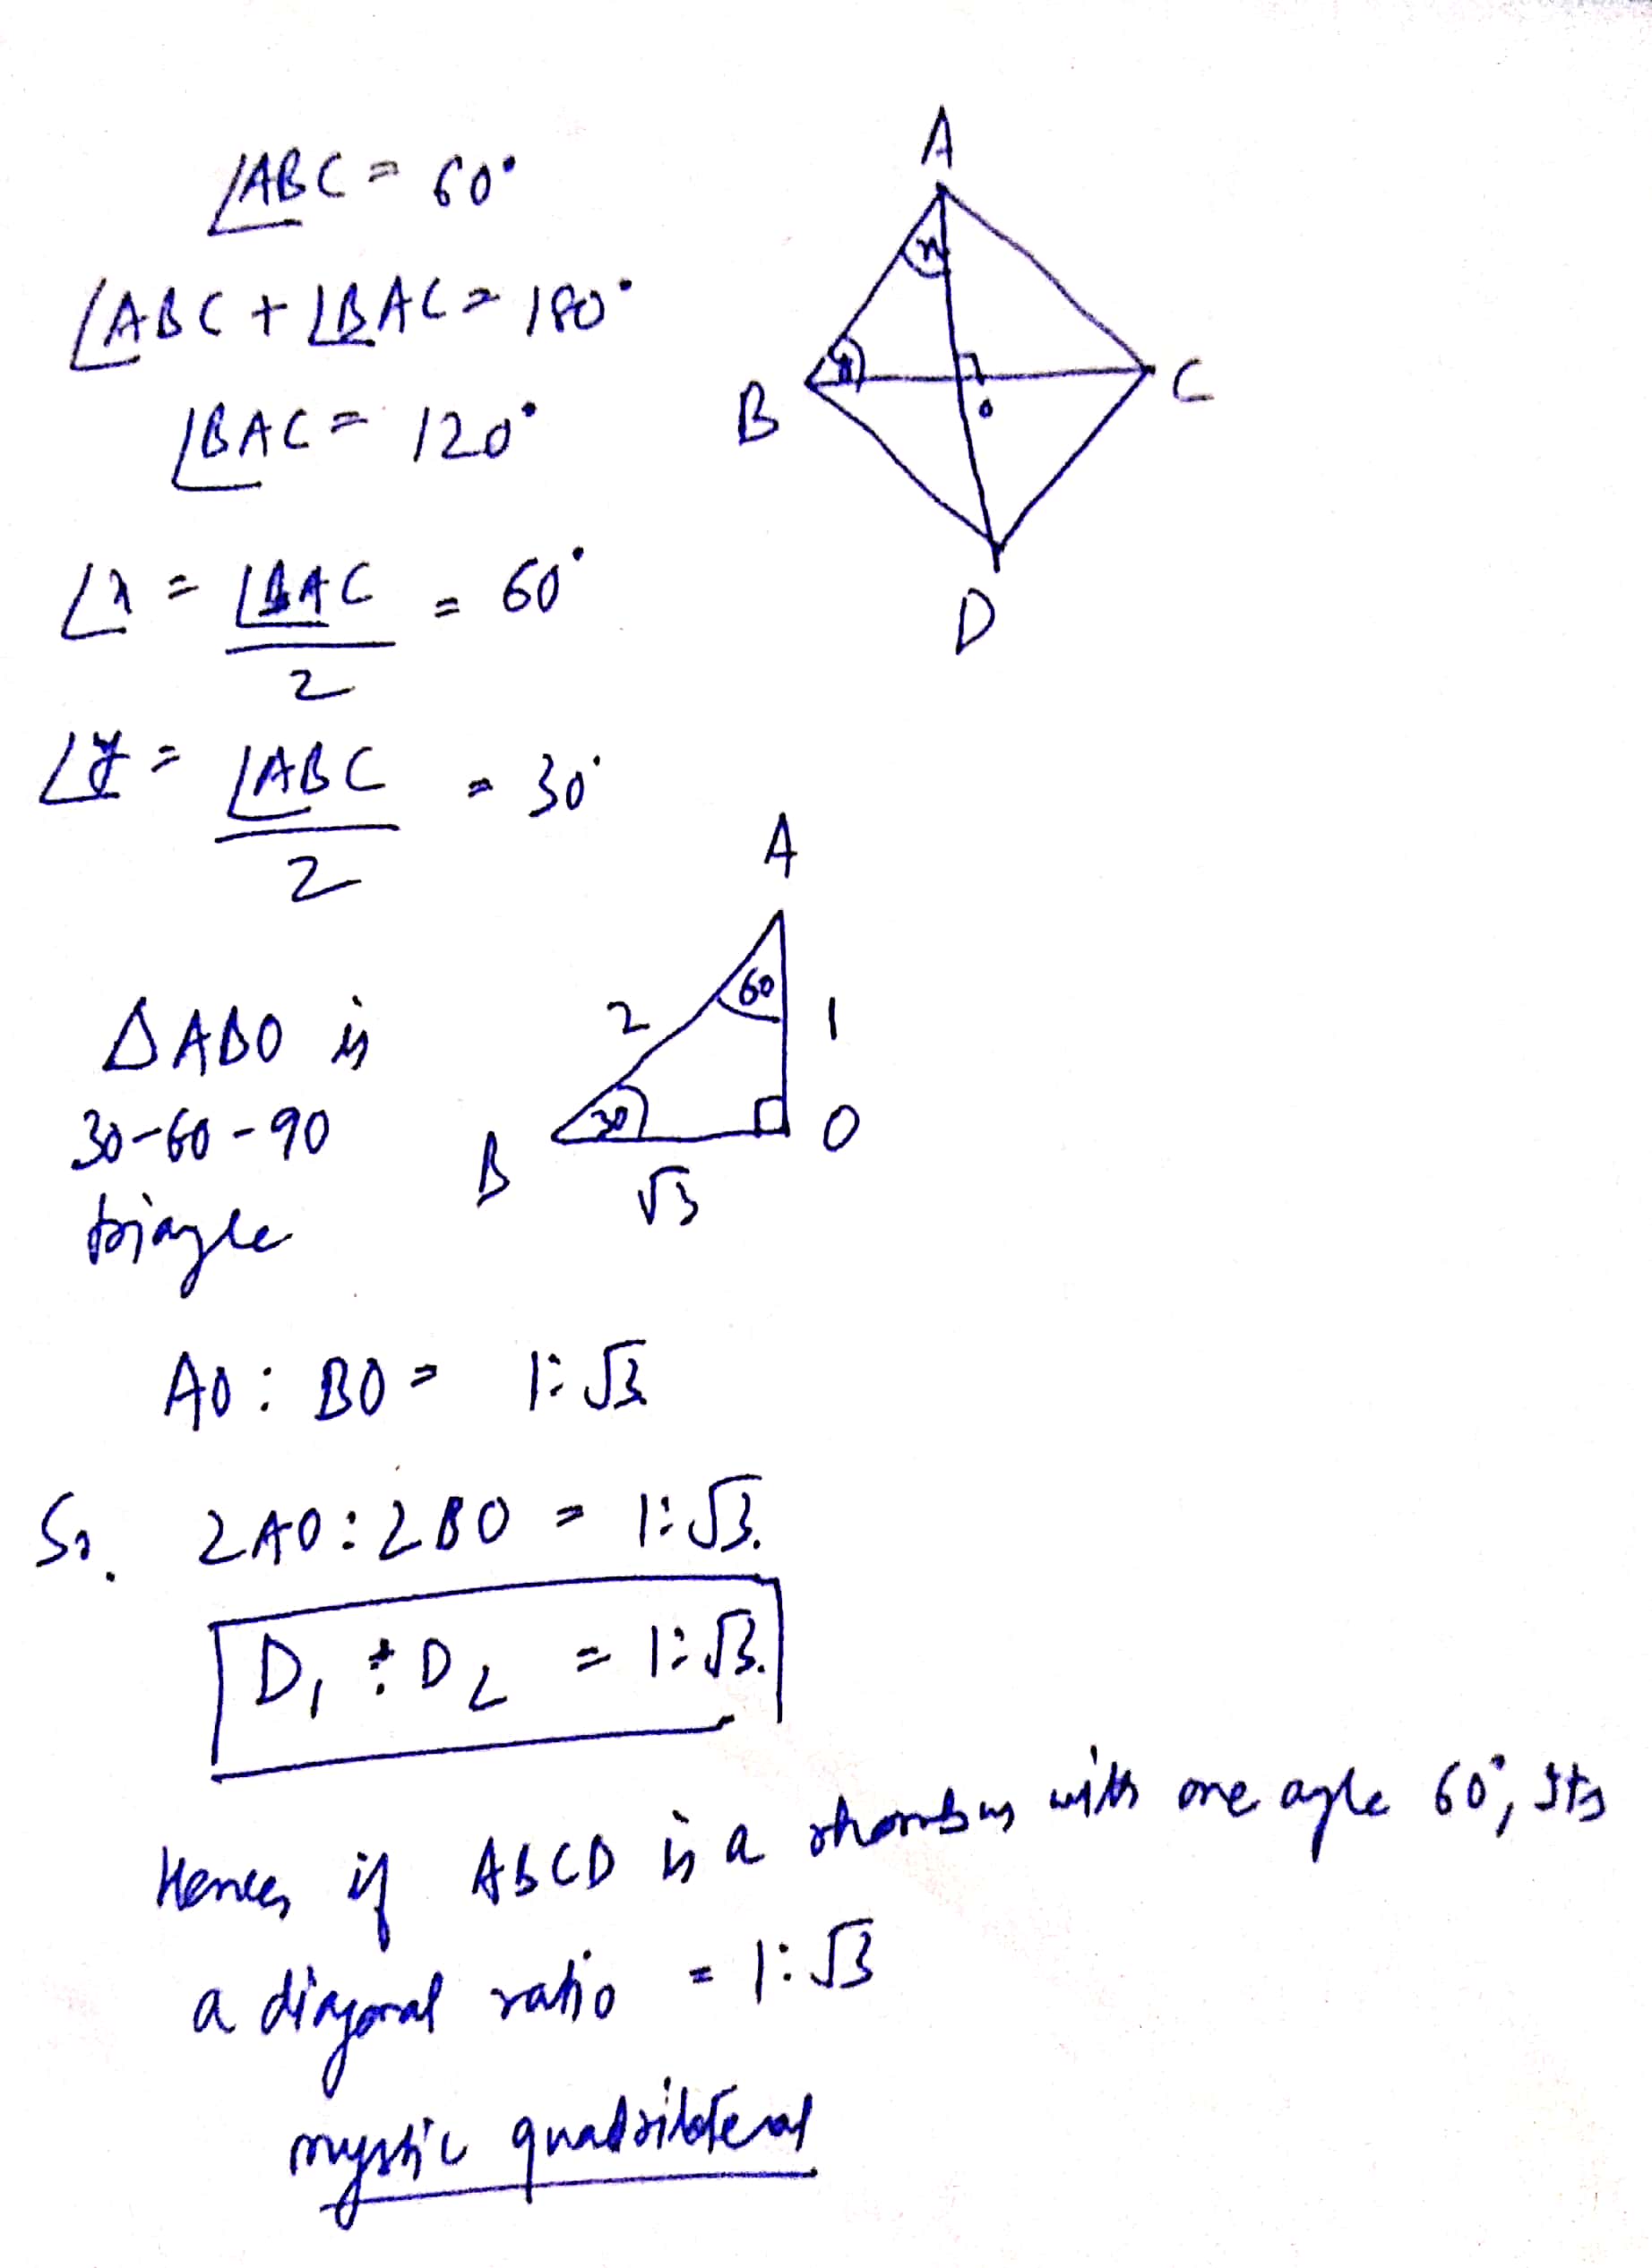 ∠ABC = 60°
∠ABC + ∠BAC = 180°
∠BAC = 120°
∠x = ∠BAC/2 = 60°
∠y = ∠ABC/2 = 30°
A
x
y
B
C
o
D
ΔABO is
30-60-90
triangle
A
60
2
1
30
B
O
√3
AO : BO = 1:√3
So, 2AO : 2BO = 1:√3.
D₁ : D₂ = 1:√3.
Hence, if ABCD is a rhombus with one angle 60°, its
a diagonal ratio = 1:√3
mystic quadrilateral